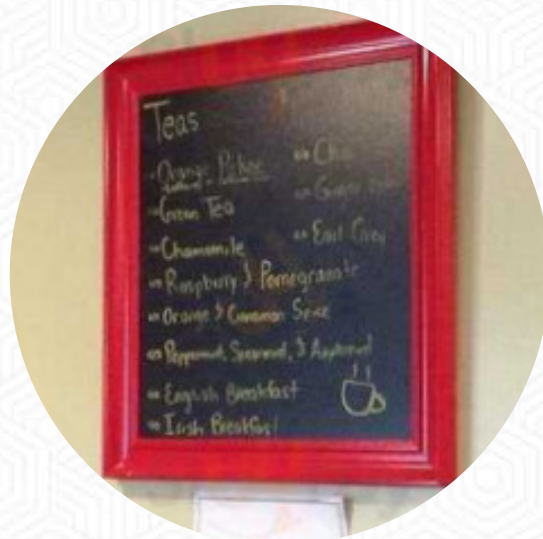 Teas
Orange Pekoe
Green Tea
Chamomile
Raspberry & Pomegranate
Orange & Cinnamon Spice
Peppermint, Spearmint, &
English Breakfast
Irish Breakfast
Chai
Earl Grey